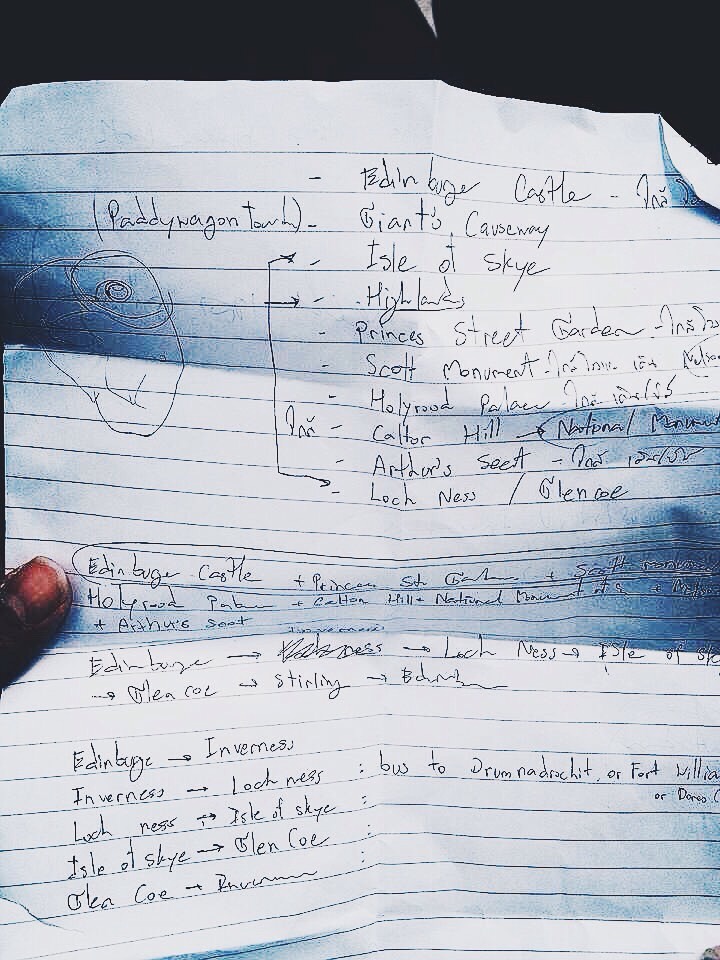 - Edinburger Castle - ใกล้
(Paddywagon tours) - Giant's Causeway
- Isle of Skye
- Highlands
- Princes Street Garden - ใกล้
- Scott Monument - ใกล้
- Holyrood Palace ใกล้
ใกล้ - Calton Hill → National Monument
- Arthur's Seat - ใกล้
- Loch Ness / Glencoe
Edinburger Castle + Princes St. Garden + Scott monument
Holyrood Palace + Calton Hill + National Monument +
+ Arthur's seat
Inverness
Edinburge → → Loch Ness → Isle of Sk
→ Glen coe → Stirling →
Edinburge → Inverness
Inverness → Loch ness : bus to Drumnadrochit, or Fort Willia
or
Loch ness → Isle of skye :
Isle of skye → Glen Coe :
Glen Coe → :